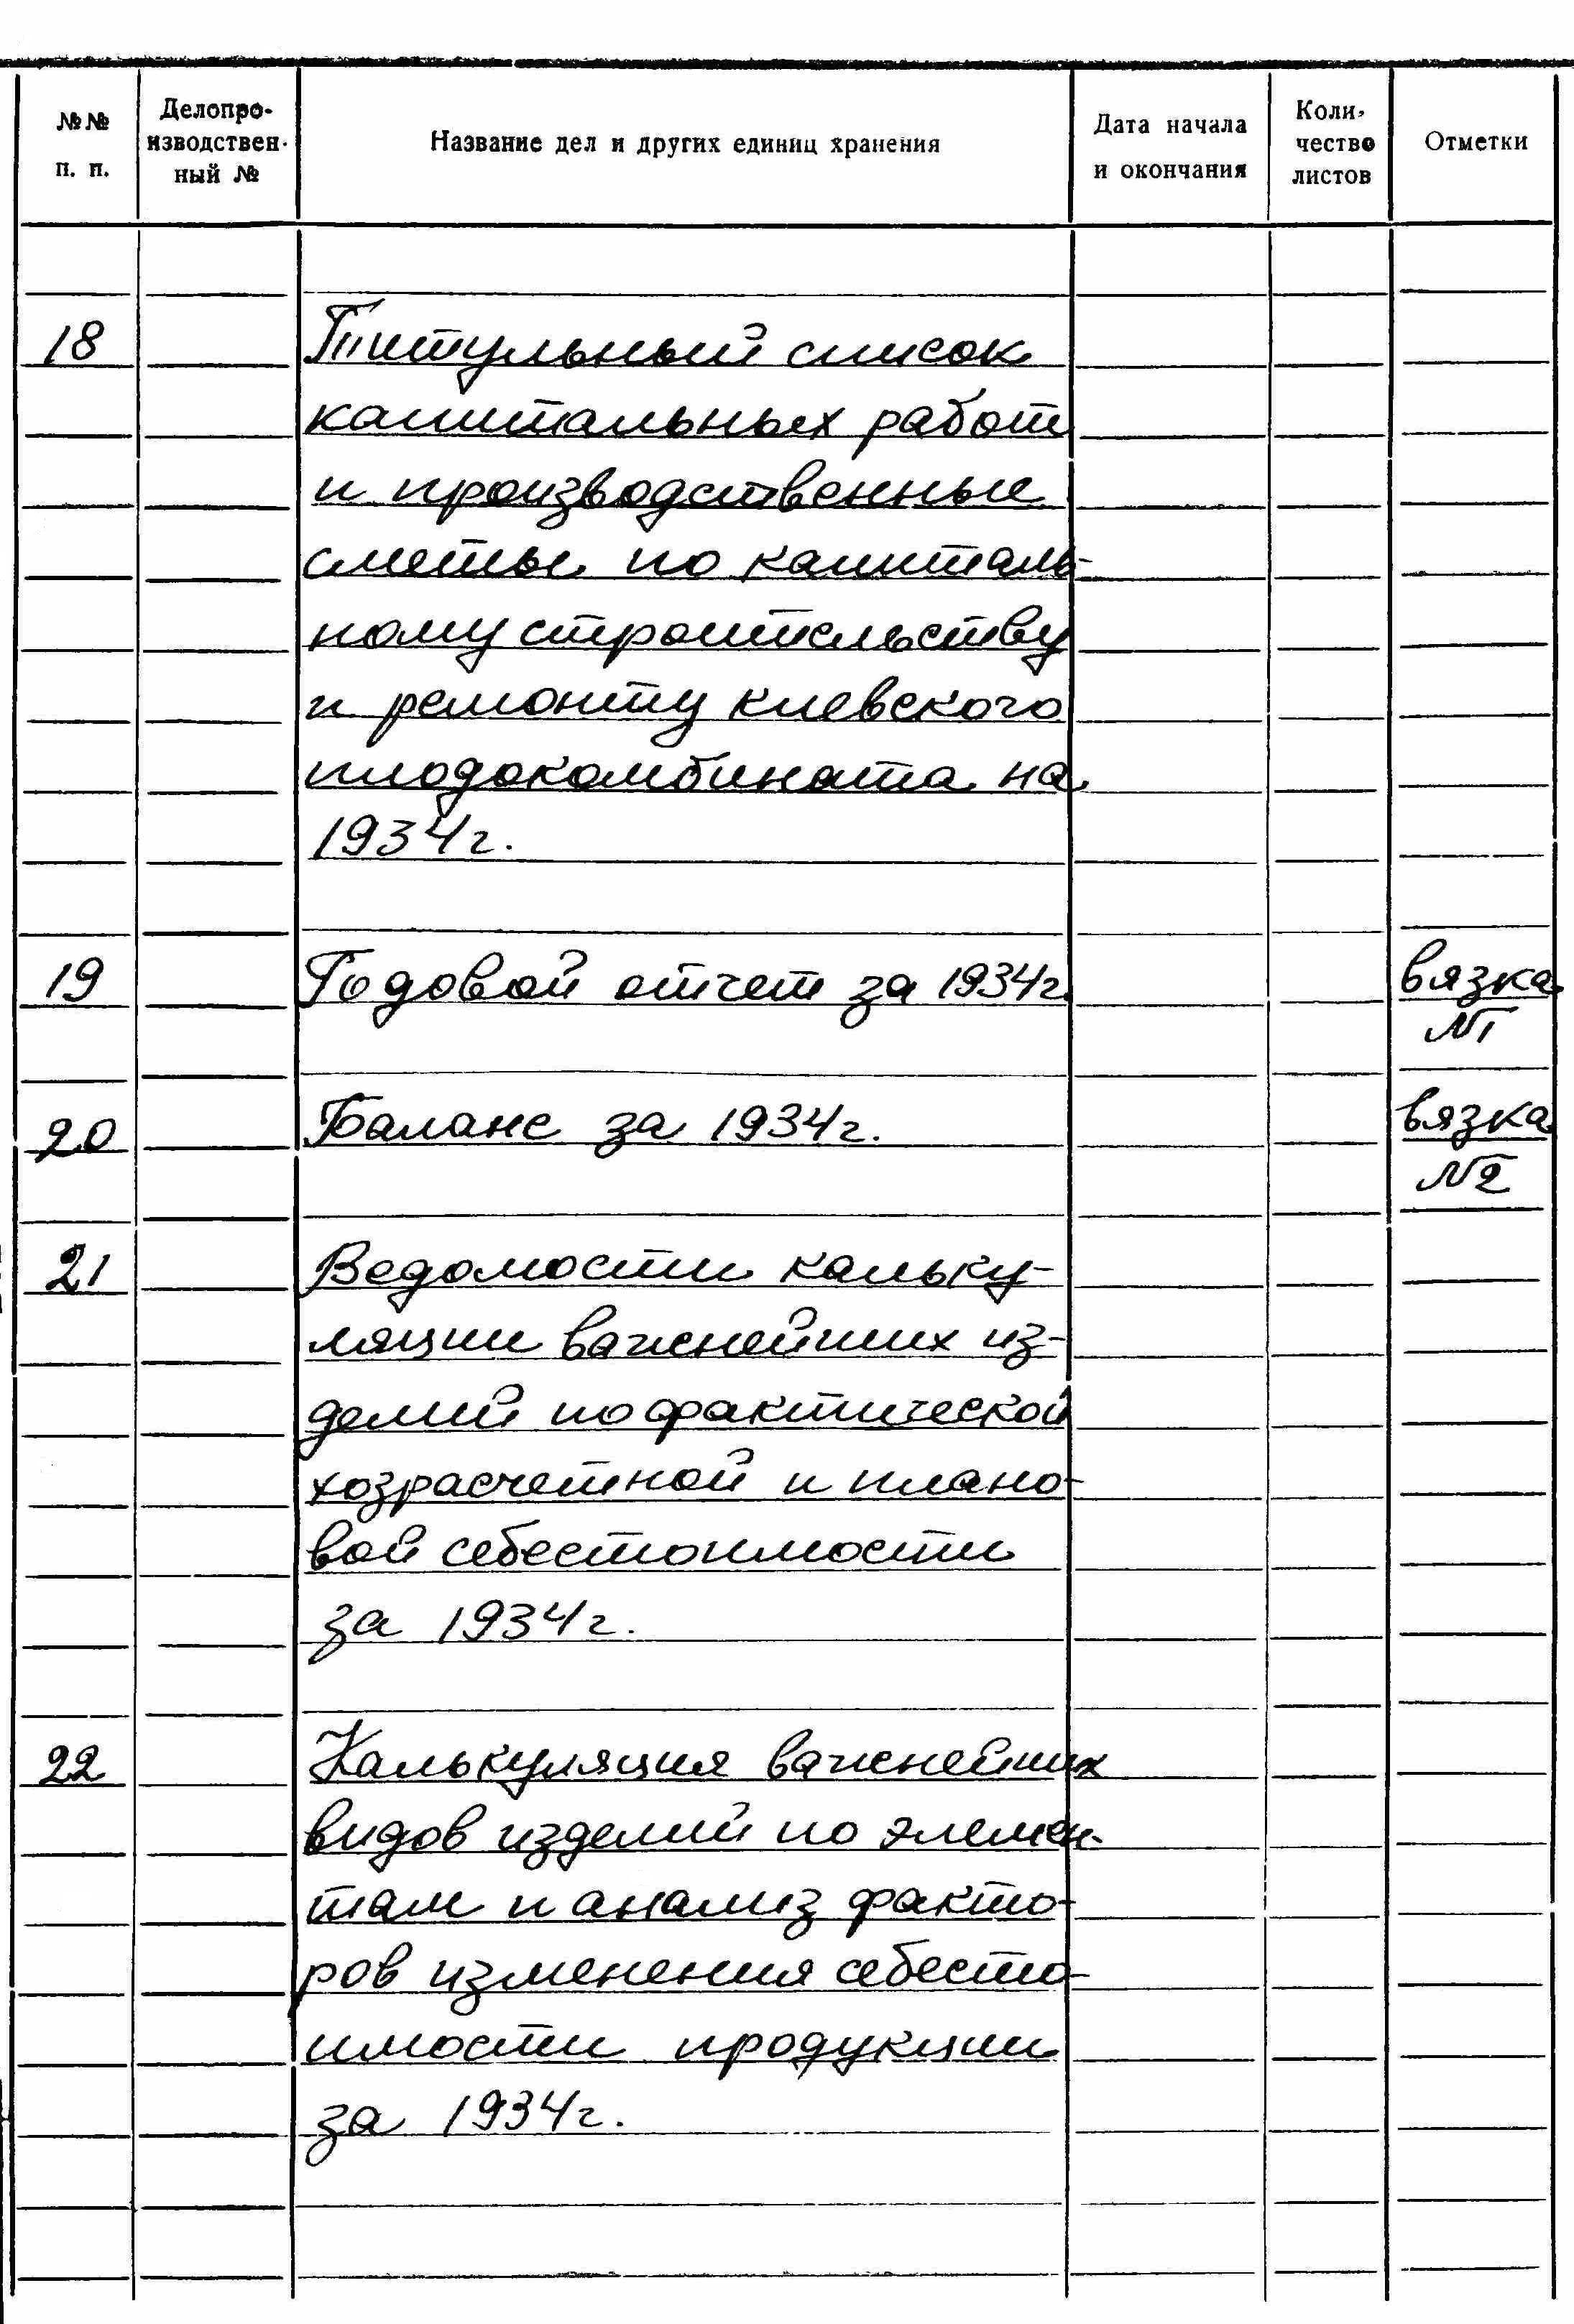 №№ п. п.
Делопро-
изводствен-
ный №
Название дел и других единиц хранения
Дата начала
и окончания
Коли-
чество
листов
Отметки
18 Титульный список
капитальных работ
и производственные
сметы по капиталь-
ному строительству
и ремонту киевского
плодокомбината на
1934г.
19 Годовой отчет за 1934г. вязка
№1
20 Баланс за 1934г. вязка
№2
21 Ведомости кальку-
ляции важнейших из-
делий по фактической
хозрасчетной и плано-
вой себестоимости
за 1934г.
22 Калькуляция важнейших
видов изделий по элемен-
там и анализ факто-
ров изменения себесто-
имости продукции
за 1934г.